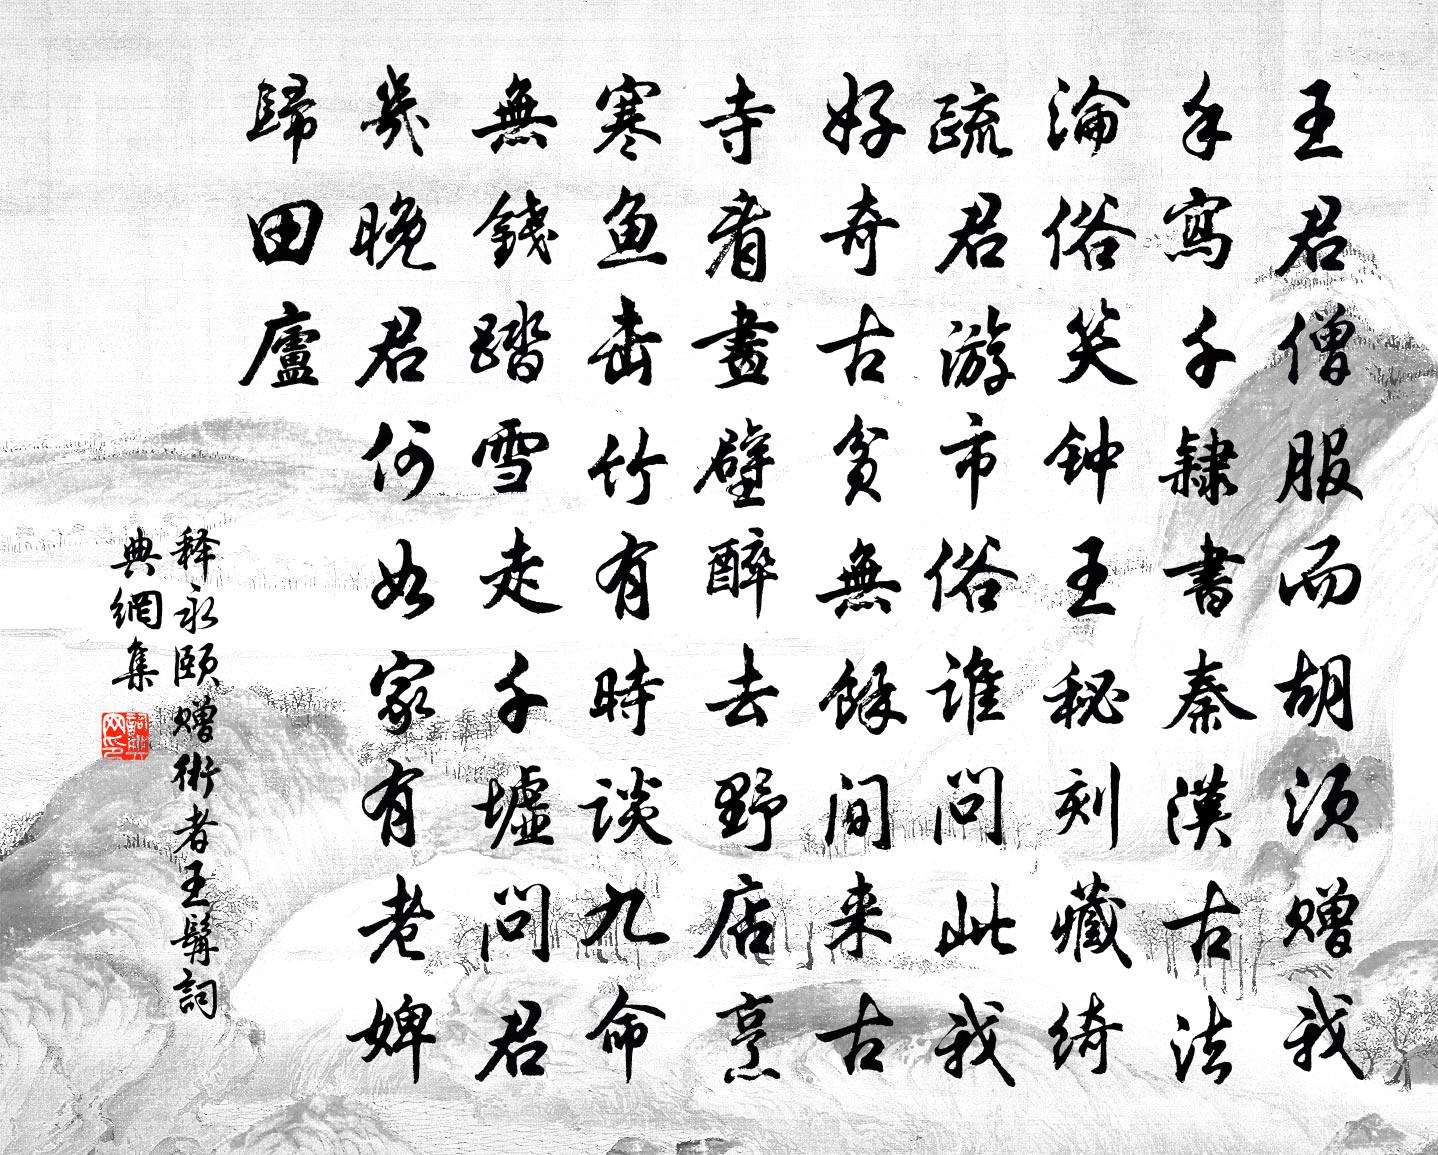 王君僧服而胡须赠我
手寫千隸書秦漢古法
淪俗笑钟王秘刻藏绮
疏君游市俗谁问此我
好奇古貧無餘间来古
寺看畫壁醉去野店烹
寒鱼击竹有時谈九命
無錢踏雪走千墟问君
幾晚君何如家有老婢
歸田廬
释永颐赠術者王髯詞
典網集